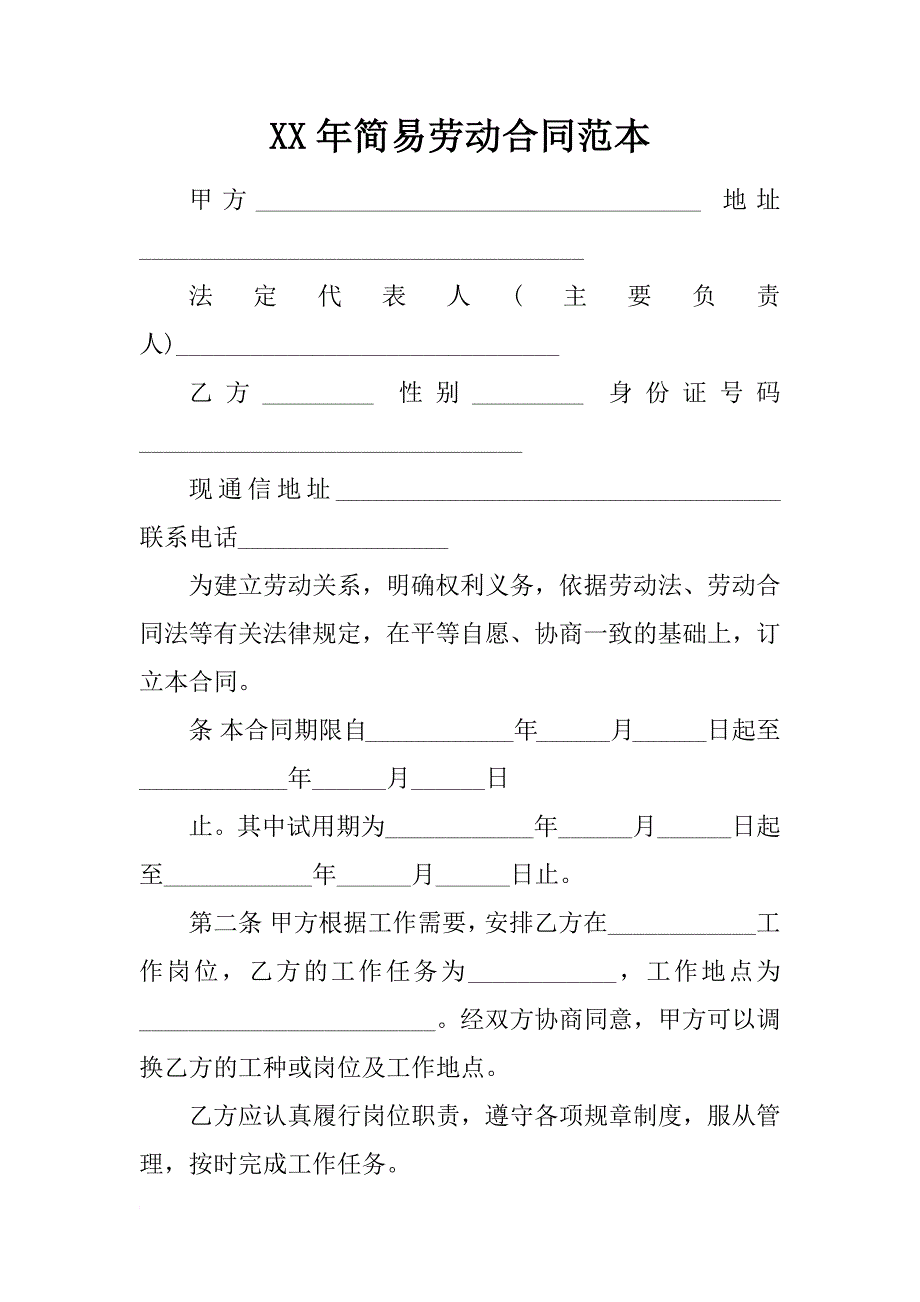 XX 年简易劳动合同范本
甲方____________________________________ 地址
____________________________________
法定代表人(主要负责
人)_______________________________
乙方_________ 性别_________ 身份证号码
_______________________________
现通信地址____________________________________
联系电话_________________
为建立劳动关系，明确权利义务，依据劳动法、劳动合
同法等有关法律规定，在平等自愿、协商一致的基础上，订
立本合同。
条 本合同期限自____________年______月______日起至
____________年______月______日
止。其中试用期为____________年______月______日起
至____________年______月______日止。
第二条 甲方根据工作需要，安排乙方在____________工
作岗位，乙方的工作任务为____________，工作地点为
________________________。经双方协商同意，甲方可以调
换乙方的工种或岗位及工作地点。
乙方应认真履行岗位职责，遵守各项规章制度，服从管
理，按时完成工作任务。